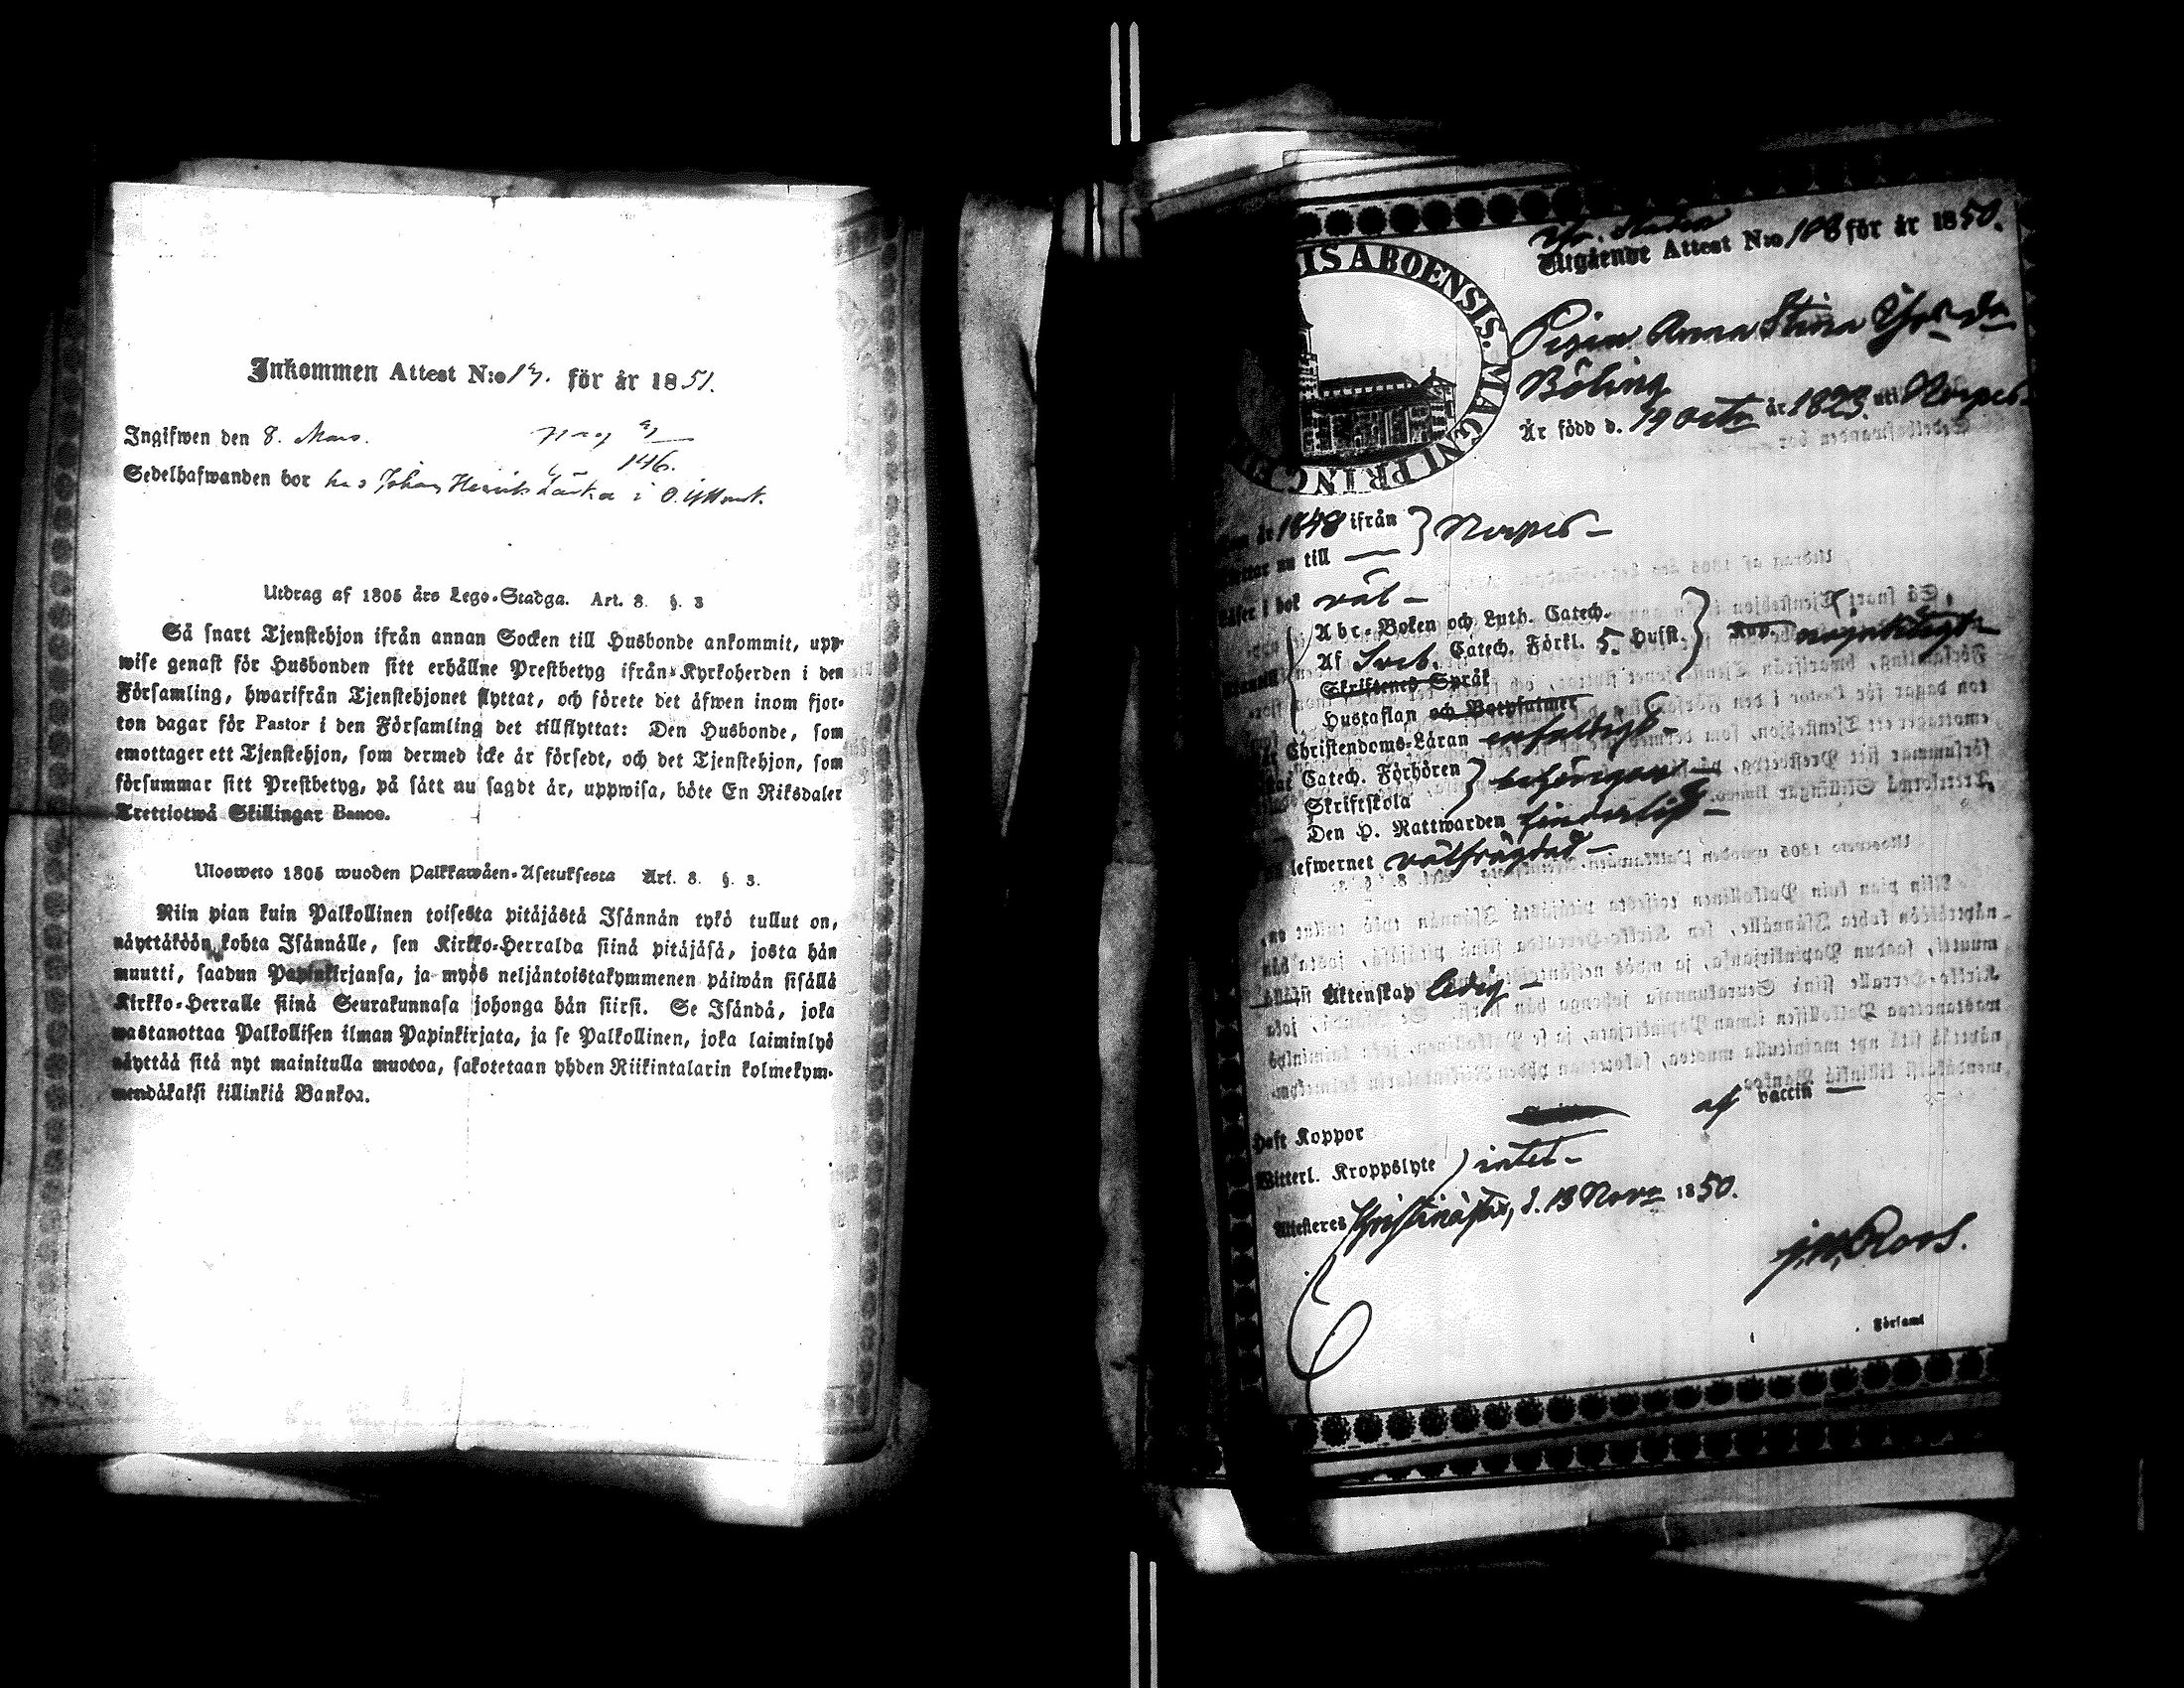 Inkommen Attest N:o 13. för år 1851.
Ingifwen den 8. Mars.
146.
Sedelhafwanden bor hos Johan Henrik i
Utdrag af 1805 års Lego-Stadga. Art. 8. §. 3
Så snart Tjenstehjon ifrån annan Socken till Husbonde ankommit, upp-
wise genast för Husbonden sitt erhållne Prestbetyg ifrån Kyrkoherden i den
Församling, hwarifrån Tjenstehjonet flyttat, och förete det äfwen inom fjor-
ton dagar för Pastor i den Församling det tillflyttat: Den Husbonde, som
emottager ett Tjenstehjon, som dermed icke är försedt, och det Tjenstehjon, som
försummar sitt Prestbetyg, på sätt nu sagdt är, uppwisa, böte En Riksdaler
Trettiotwå Skillingar Banco.
Ulosweto 1805 wuoden Palkkawäen-Asetuksesta Art. 8. §. 3.
Niin pian kuin Palkollinen toisesta pitäjästä Isännän tykö tullut on,
näyttäköön kohta Isännälle, sen Kirkko-Herralda siinä pitäjäsä, josta hän
muutti, saadun Papinkirjansa, ja myös neljäntoistakymmenen päiwän sisällä
Kirkko-Herralle siinä Seurakunnasa johonga hän siirsi. Se Isändä, joka
wastanottaa Palkollisen ilman Papinkirjata, ja se Palkollinen, joka laiminlyö
näyttää sitä nyt mainitulla muotoa, sakotetaan yhden Riikintalarin kolmekym-
mendäkaksi killinkiä Bankoa.
Utgående Attest N:o 108 för år 1850.
IS ABOENSIS. MAGNI PRINC
Pigan Anna Stina
Böling
Är född d. 19 Octr år 1823. uti Nerpes
år 1848 ifrån } Nerpes
nu till —
Läser i bok väl —
Abc-Boken och Luth. Catech.
Af Sveb. Catech. Förkl. 5. Hufst.
Skriftenes Språk
Hustaflan och Botpsalmer
Christendoms-Läran enfaldigt —
Catech. Förhören
Skriftskola
Den H. Nattwarden
lefwernet välfrägdad —
Äktenskap ledig —
af vaccin —
Haft Koppor
Witterl. Kroppslyte } intet —
Attesteres Kristinestad, d. 13 Novr 1850.
J. M. Roos.
Församl